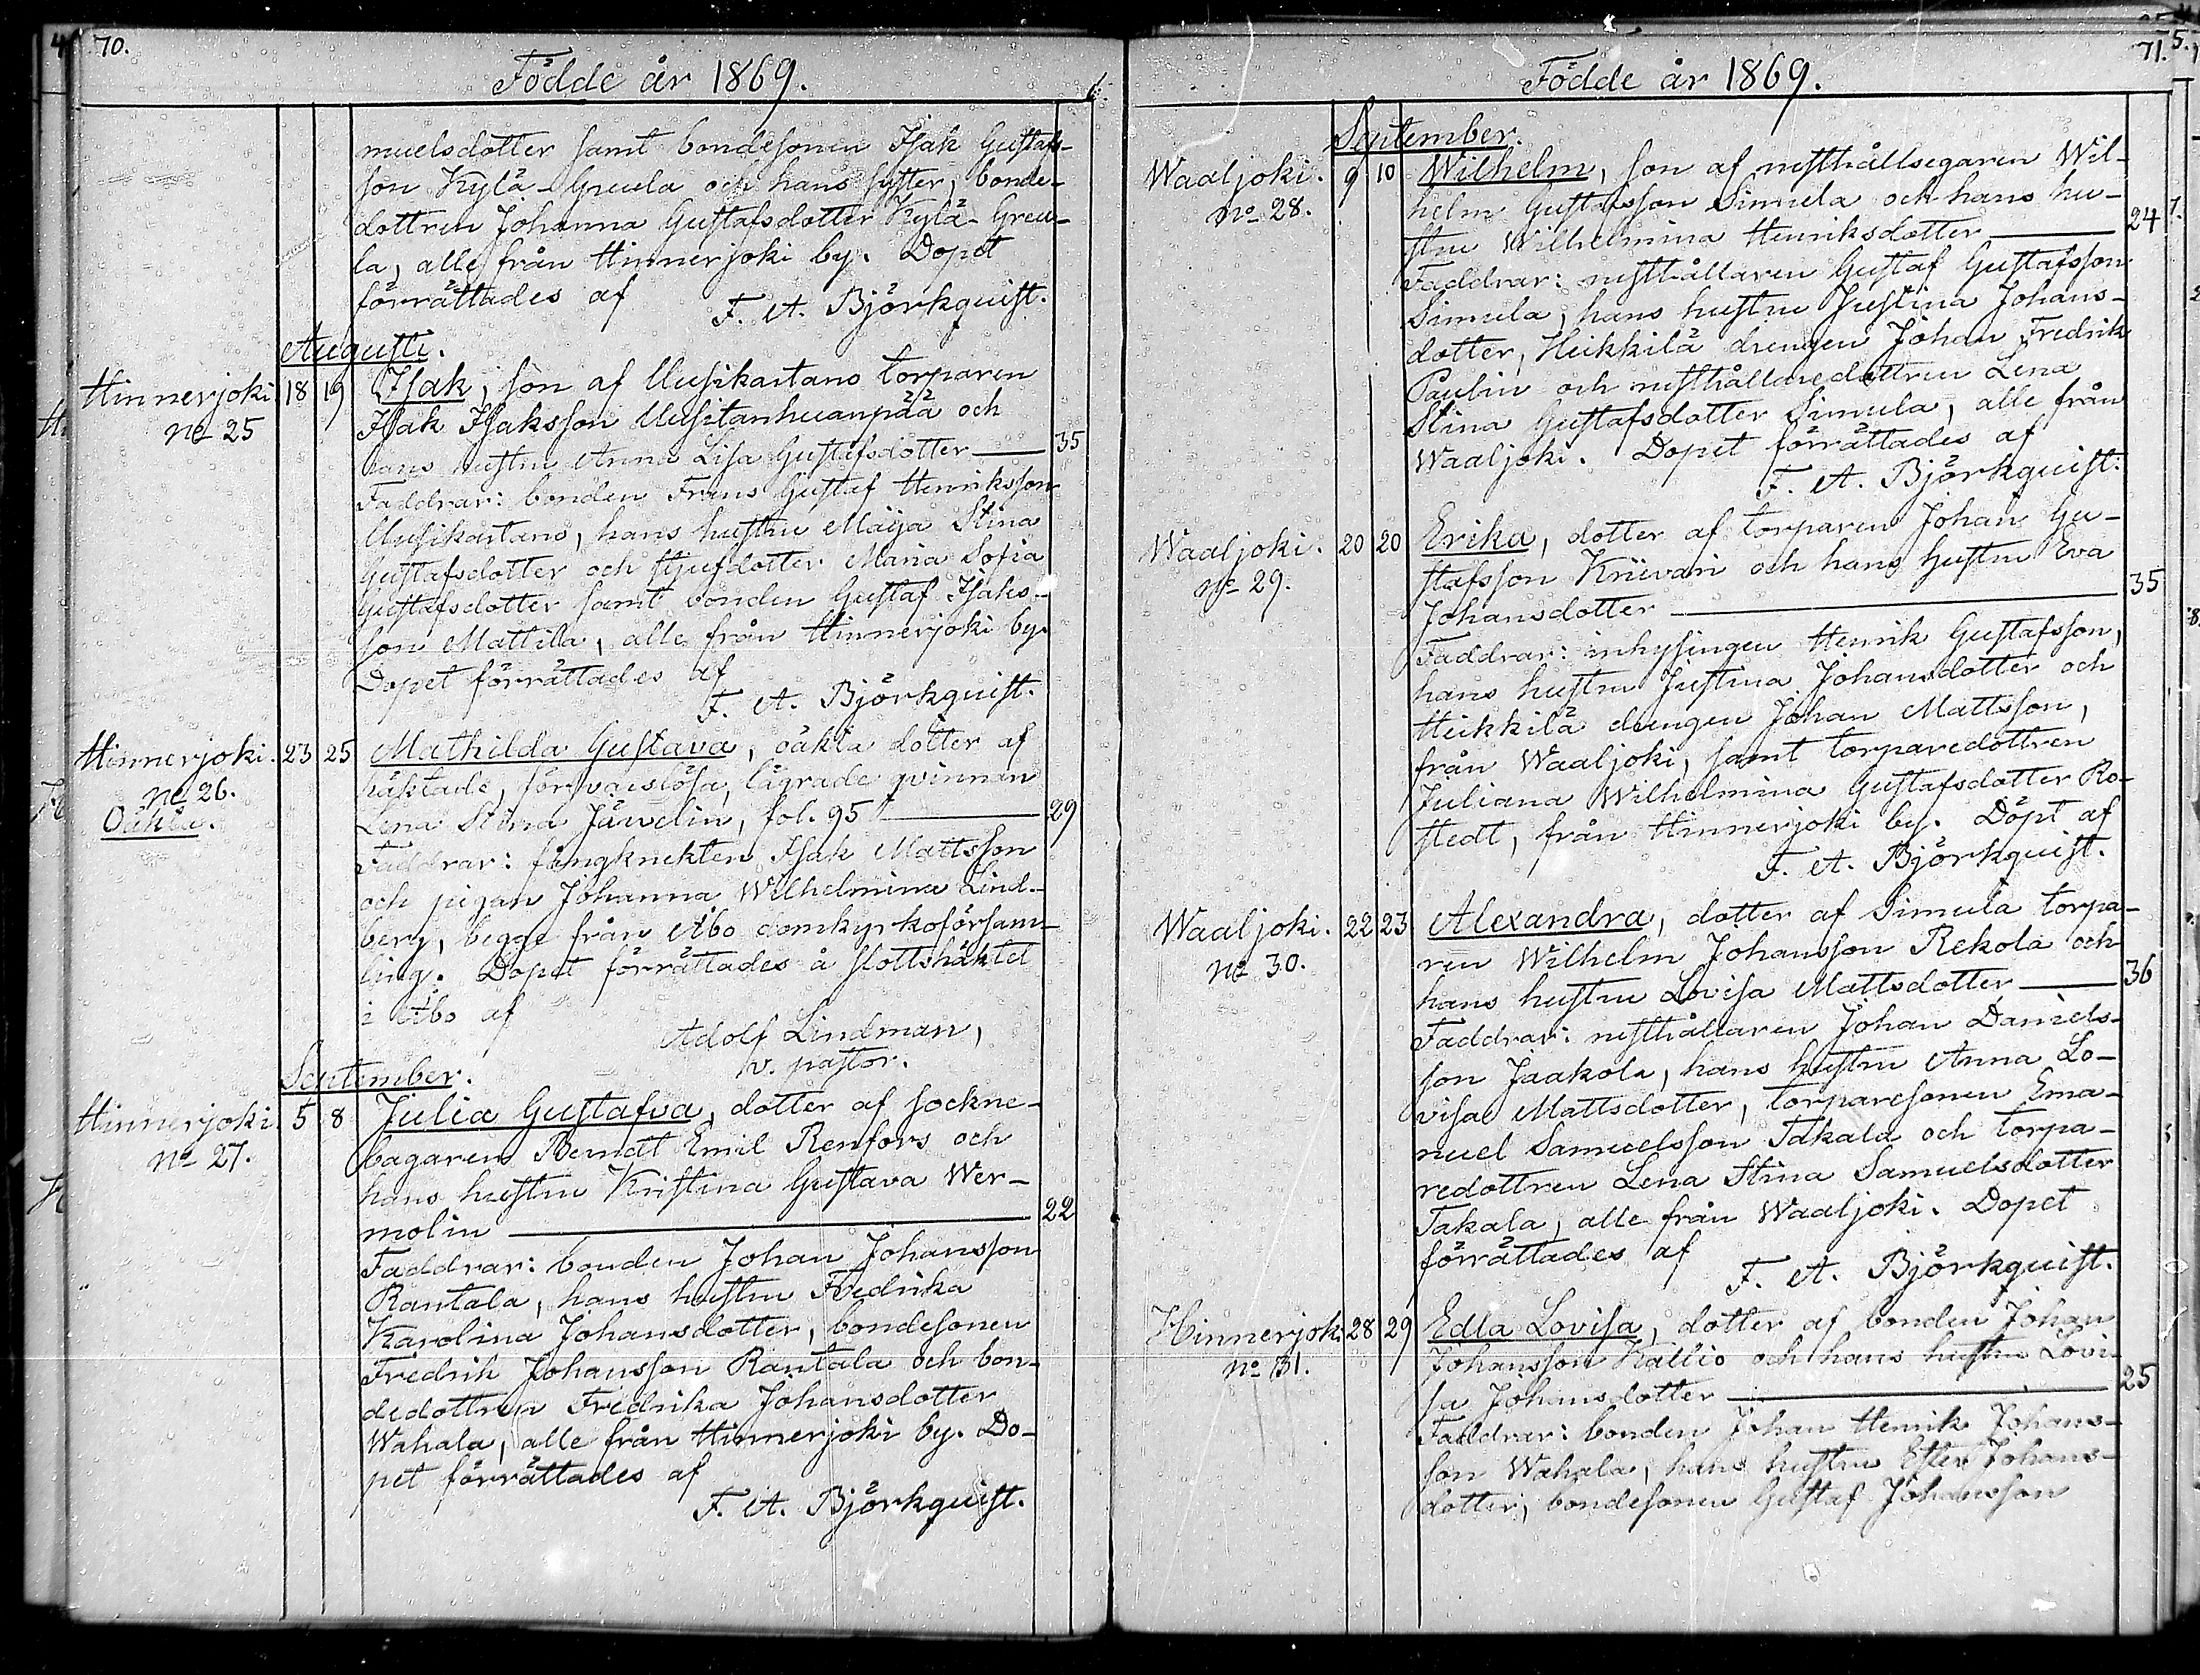 70.
Födde år 1869.
muelsdotter samt bondesonen Isak Gustafs-
son Kylä-Greula och hans syster, bonde-
dottren Johanna Gustafsdotter Kylä-Greu-
la, alle från Hinnerjoki by. Dopet
förrättades af
F. A. Björkquist.
Augusti.
Hinnerjoki 18 19 Isak, son af Uusikartano torparen
No 25 Isak Isaksson Uusitanhuanpää och
hans hustru Anna Lisa Gustafsdotter — 35
Faddrar: bonden Frans Gustaf Henriksson
Uusikartano, hans hustru Maija Stina
Gustafsdotter och stjufdotter Maria Sofia
Gustafsdotter samt bonden Gustaf Isaks-
son Mattila, alle från Hinnerjoki by.
Dopet förrättades af
F. A. Björkquist.
Hinnerjoki. 23 25 Mathilda Gustava, oäkta dotter af
No 26. häktade, försvarslösa, lägrade qvinnan
Oäkta. Lena Stina Jäwelin, fol. 95 — 29
Faddrar: fångknekten Isak Mattsson
och pigan Johanna Wilhelmina Lind-
berg, begge från Åbo domkyrkoförsam-
ling. Dopet förrättades å slottshäktet
i Åbo af
Adolf Lindman,
v. pastor.
September.
Hinnerjoki 5 8 Julia Gustafva, dotter af sockne-
No 27. bagaren Berndt Emil Renfors och
hans hustru Kristina Gustava Wer-
molin — 22
Faddrar: bonden Johan Johansson
Rantala, hans hustru Fredrika
Karolina Johansdotter, bondesonen
Fredrik Johansson Rantala och bon-
dedottren Fredrika Johansdotter
Wahala, alle från Hinnerjoki by. Do-
pet förrättades af
F. A. Björkquist.
71.
Födde år 1869.
September.
Waaljoki. 9 10 Wilhelm, son af rusthållsegaren Wil-
No 28. helm Gustafsson Simula och hans hu-
stru Wilhelmina Henriksdotter — 24
Faddrar: rusthållaren Gustaf Gustafsson
Simula, hans hustru Justina Johans-
dotter, Heikkilä drengen Johan Fredrik
Paulin och rusthållaredottren Lena
Stina Gustafsdotter Simula, alle från
Waaljoki. Dopet förrättades af
F. A. Björkquist.
Waaljoki. 20 20 Erika, dotter af torparen Johan Gu-
No 29. stafsson Kriivari och hans hustru Eva
Johansdotter — 35
Faddrar: inhysingen Henrik Gustafsson,
hans hustru Justina Johansdotter och
Heikkilä drengen Johan Mattsson,
från Waaljoki, samt torparedottren
Juliana Wilhelmina Gustafsdotter Ro-
stedt, från Hinnerjoki by. Döpt af
F. A. Björkquist.
Waaljoki. 22 23 Alexandra, dotter af Simula torpa-
No 30. ren Wilhelm Johansson Rekola och
hans hustru Lovisa Mattsdotter — 36
Faddrar: rusthållaren Johan Daniels-
son Jaakola, hans hustru Anna Lo-
visa Mattsdotter, torparesonen Ema-
nuel Samuelsson Takala och torpa-
redottren Lena Stina Samuelsdotter
Takala, alle från Waaljoki. Dopet
förrättades af
F. A. Björkquist.
Hinnerjok. 28 29 Edla Lovisa, dotter af bonden Johan
No 31. Johansson Kallio och hans hustru Lovi-
sa Johansdotter — 25
Faddrar: bonden Johan Henrik Johans-
son Wahala, hans hustru Ester Johans-
dotter, bondesonen Gustaf Johansson